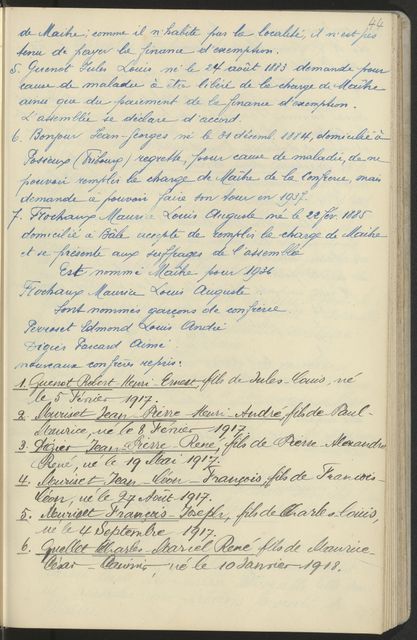 44
de Maître; comme il n'habite pas la localité, il n'est pas
tenu de payer la finance d'exemption.
5. Guenot Jules Louis né le 24 août 1883 demande pour
cause de maladie à être libéré de la charge de Maître
ainsi que du paiement de la finance d'exemption.
L'assemblée se déclare d'accord.
6. Bonjour Jean-Georges né le 31 décemb. 1884, domicilié à
Posieux (Fribourg) regrette, pour cause de maladie, de ne
pouvoir remplir la charge de Maître de la Confrérie, mais
demande à pouvoir faire son tour en 1937.
7. Flochaux Maurice Louis Auguste né le 22 fév. 1885
domicilié à Bâle accepte de remplir la charge de Maître
et se présente aux suffrages de l'assemblée
Est nommé Maître pour 1936
Flochaux Maurice Louis Auguste
Sont nommés garçons de confrérie
Perroset Edmond Louis André
Digier Pascard Aimé.
nouveaux confrères reçus:
1. Guenot Robert-Henri-Ernest fils de Jules-Louis, né
le 5 Février 1917.
2. Mouriset Jean-Pierre-Henri-André, fils de Paul-
Maurice, né le 8 Février 1917.
3. Digier Jean-Pierre-René, fils de Pierre Alexandre
René, né le 19 Mai 1917.
4. Mouriset Jean-Léon-François, fils de François-
Léon, né le 27 Août 1917.
5. Mouriset François-Joseph, fils de Charles-Louis,
né le 4 Septembre 1917.
6. Quellet Charles-Marcel René fils de Maurice
César, né le 10 Janvier 1918.